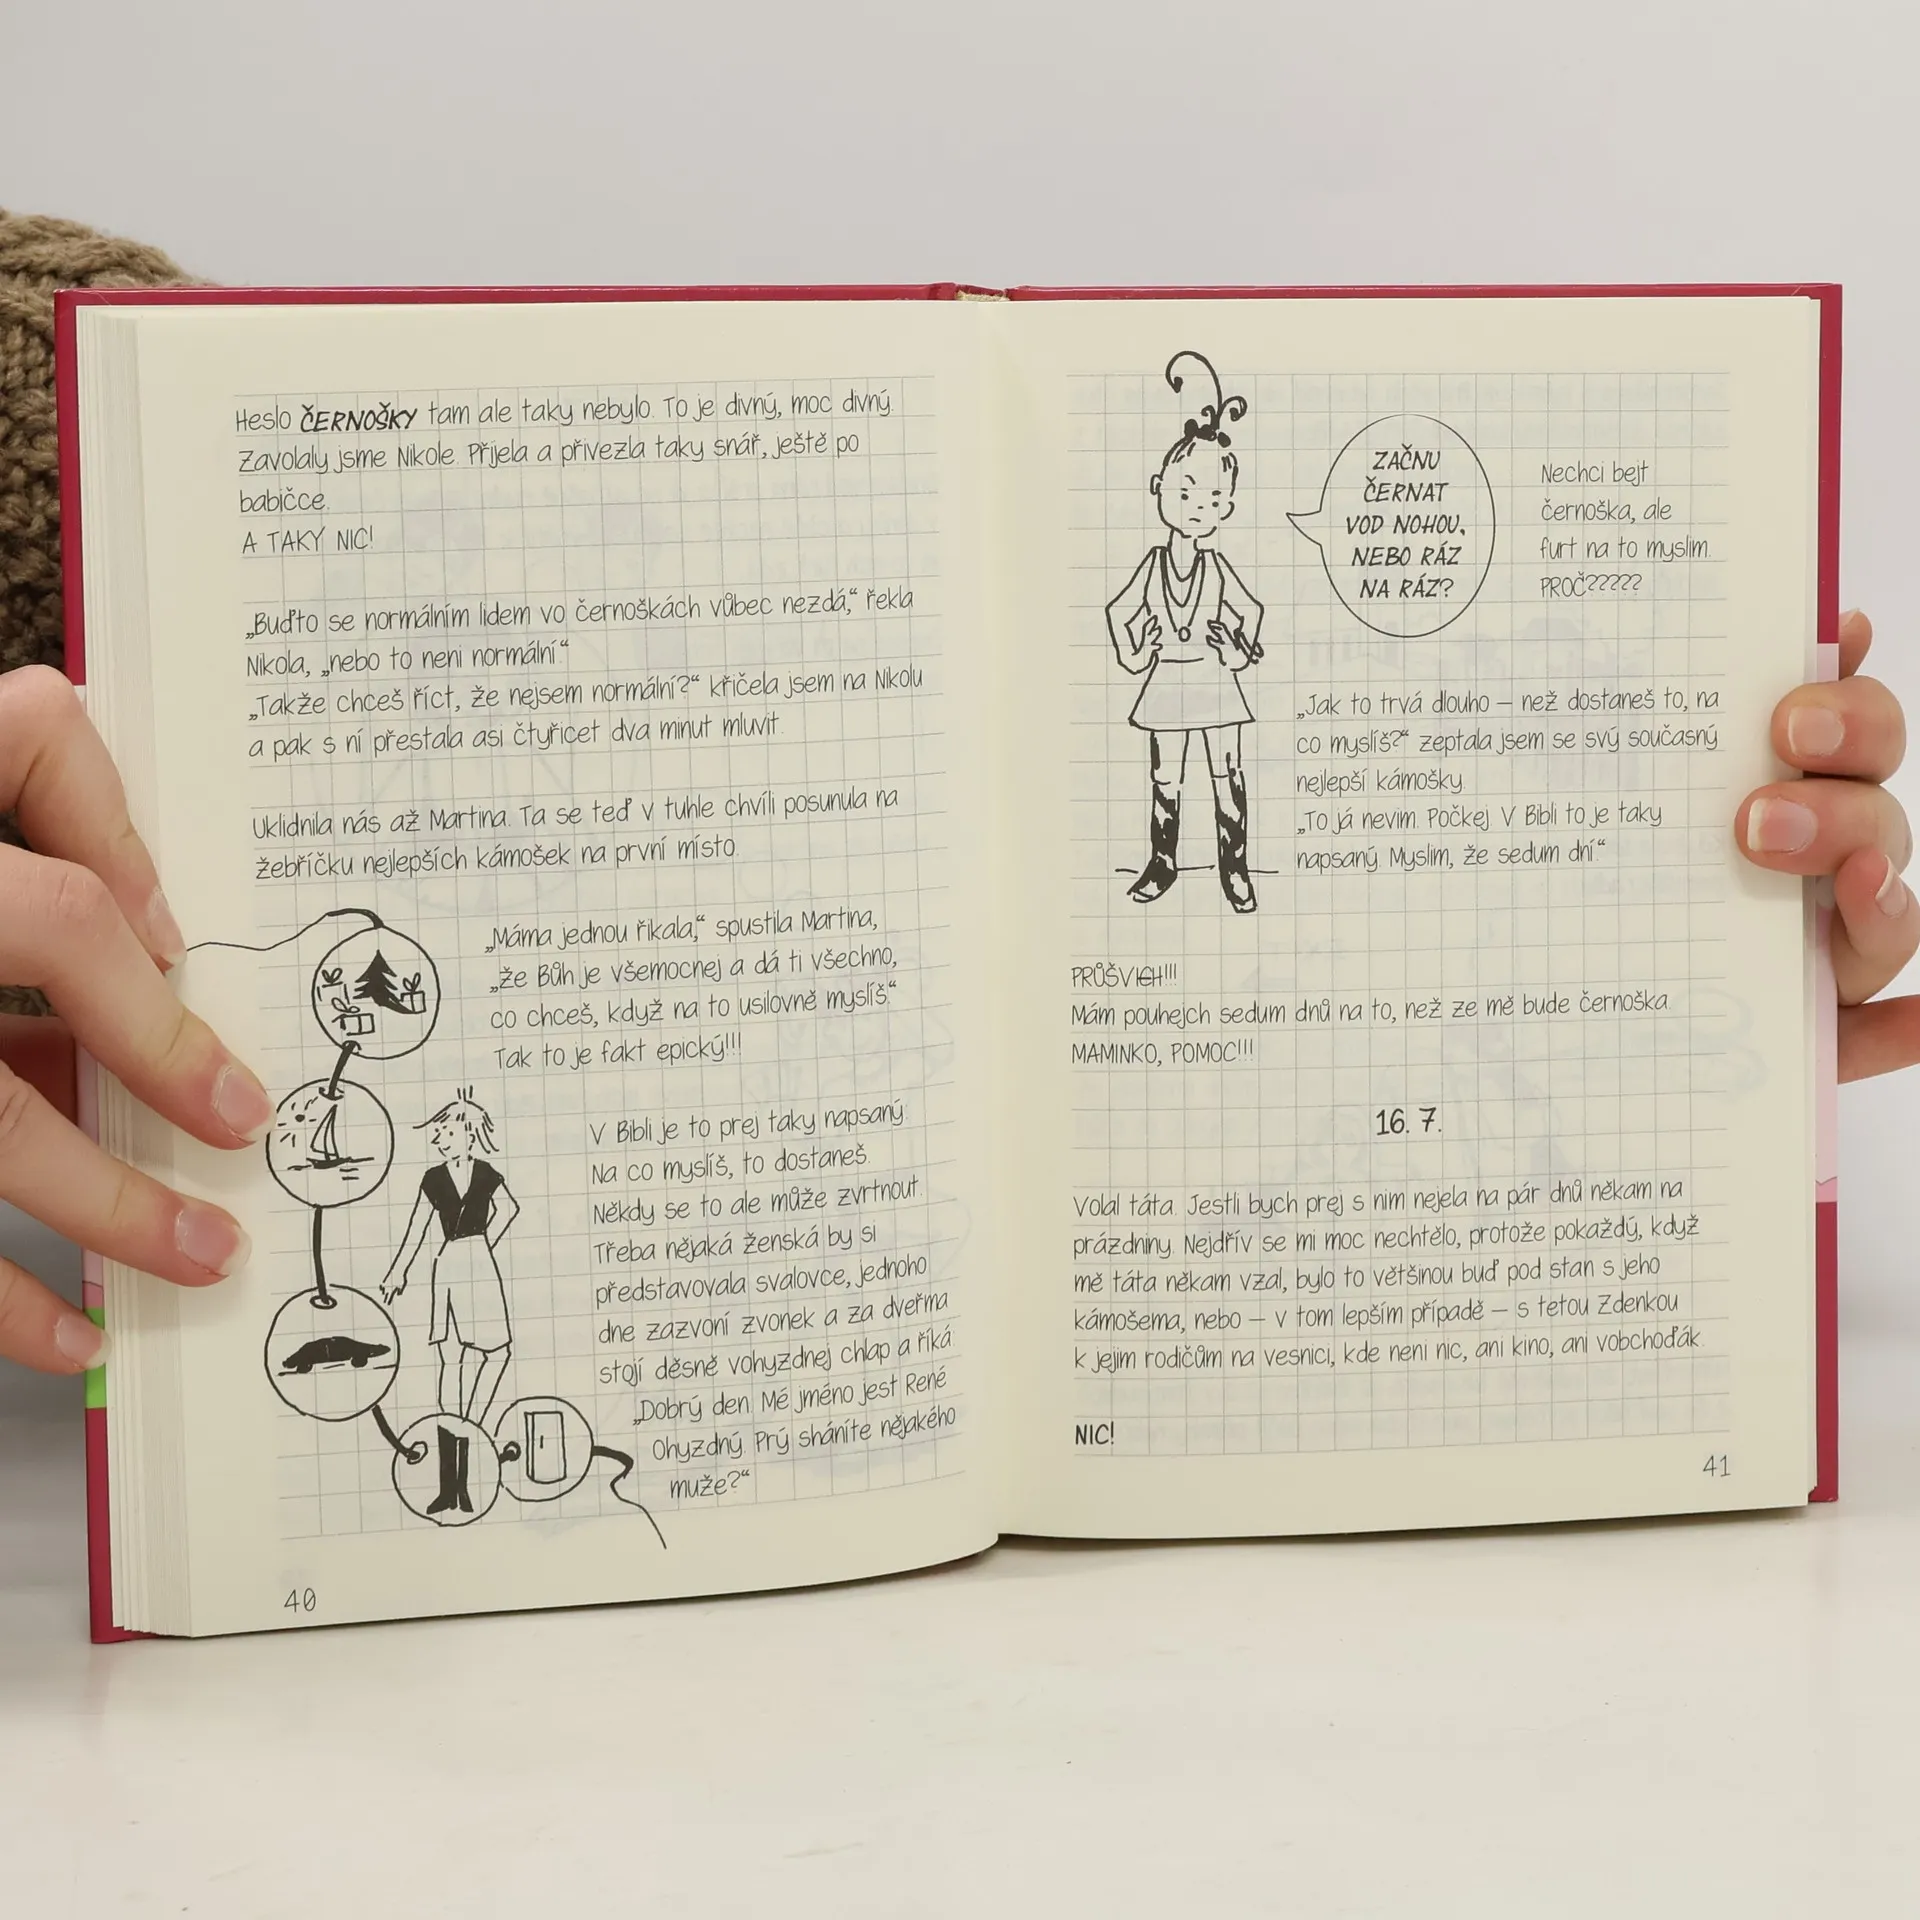 Heslo ČERNOŠKY tam ale taky nebylo. To je divný, moc divný.
Zavolaly jsme Nikole. Přijela a přivezla taky snář, ještě po
babičce.
A TAKY NIC!
„Buďto se normálním lidem vo černoškách vůbec nezdá,“ řekla
Nikola, „nebo to neni normální.“
„Takže chceš říct, že nejsem normální?“ křičela jsem na Nikolu
a pak s ní přestala asi čtyřicet dva minut mluvit.
Uklidnila nás až Martina. Ta se teď v tuhle chvíli posunula na
žebříčku nejlepších kámošek na první místo.
„Máma jednou říkala,“ spustila Martina,
„že Bůh je všemocnej a dá ti všechno,
co chceš, když na to usilovně myslíš.“
Tak to je fakt epický!!!
V Bibli je to prej taky napsaný:
Na co myslíš, to dostaneš.
Někdy se to ale může zvrtnout.
Třeba nějaká ženská by si
představovala svalovce, jednoho
dne zazvoní zvonek a za dveřma
stojí děsně vohyzdnej chlap a říká:
„Dobrý den. Mé jméno jest René
Ohyzdný. Prý sháníte nějakého
muže?“
40
ZAČNU
ČERNAT
VOD NOHOU,
NEBO RÁZ
NA RÁZ?
Nechci bejt
černoška, ale
furt na to myslim.
PROČ?????
„Jak to trvá dlouho – než dostaneš to, na
co myslíš?“ zeptala jsem se svý současný
nejlepší kámošky.
„To já nevim. Počkej. V Bibli to je taky
napsaný. Myslim, že sedum dní.“
PRŮŠVIH!!!
Mám pouhejch sedum dnů na to, než ze mě bude černoška.
MAMINKO, POMOC!!!
16. 7.
Volal táta. Jestli bych prej s nim nejela na pár dnů někam na
prázdniny. Nejdřív se mi moc nechtělo, protože pokaždý, když
mě táta někam vzal, bylo to většinou buď pod stan s jeho
kámošema, nebo – v tom lepším případě – s tetou Zdenkou
k jejim rodičům na vesnici, kde neni nic, ani kino, ani vobchoďák.
NIC!
41